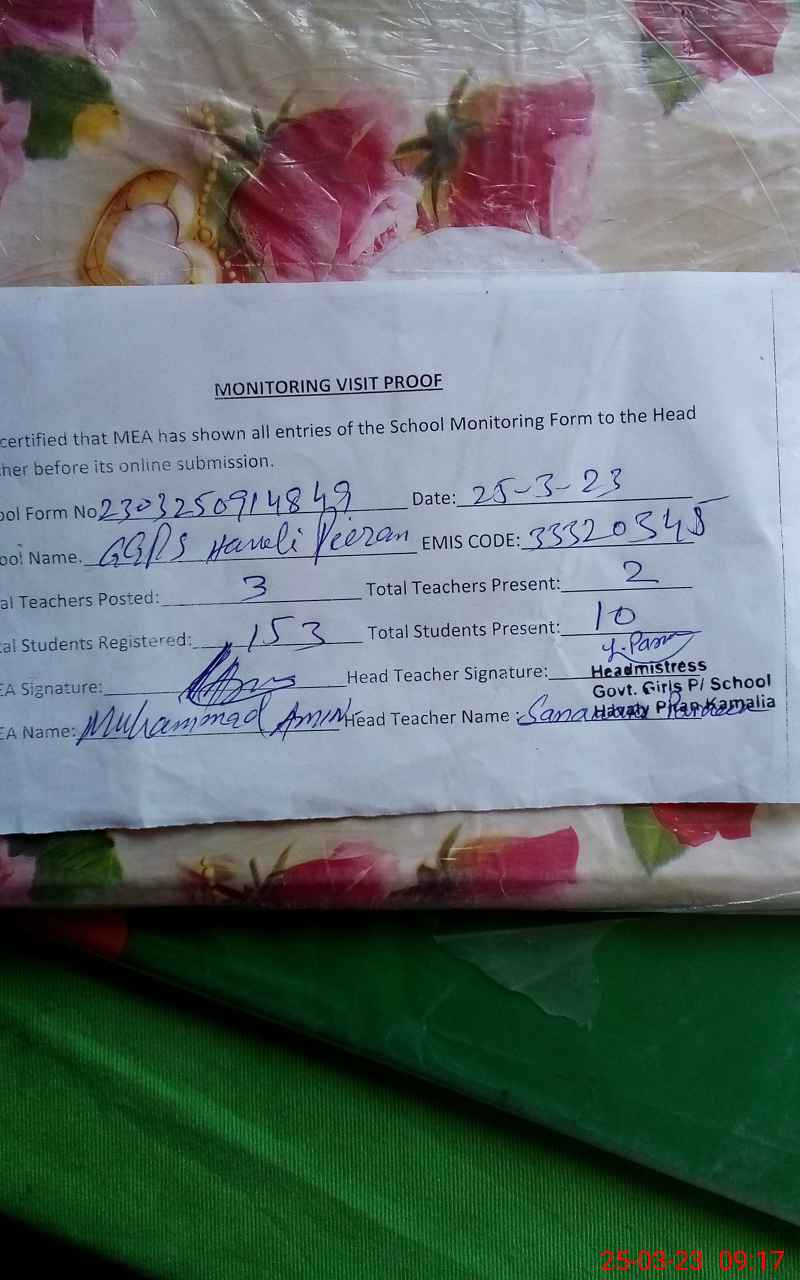 MONITORING VISIT PROOF
certified that MEA has shown all entries of the School Monitoring Form to the Head
her before its online submission.
ool Form No 2303250914849 Date: 25-3-23
ool Name. GGPS Haveli Peeran EMIS CODE: 33320345
al Teachers Posted: 3 Total Teachers Present: 2
al Students Registered: 153 Total Students Present: 10
EA Signature: Head Teacher Signature:
Headmistress
Govt. Girls P/ School
Havaly Piran Kamalia
EA Name: Muhammad Amin Head Teacher Name :
25-03-23 09:17